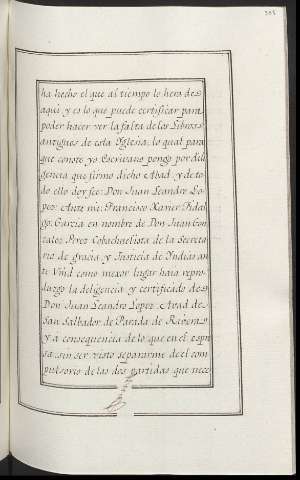 ha hecho el que al tiempo lo hera de
aqui y es lo que puede certificar para
poder hacer ver la falta de los Libros
antiguos de esta Yglesia, lo qual para
que conste yo Escrivano pongo por dili
gencia que firmo dicho Abad, y de to
do ello doy fee: Don Juan Leandro Lo
pez: Ante mi: Francisco Xavier Fidal
go. Garcia en nombre de Don Juan Gon
zalez Perez Cobachuelista de la Secreta
ria de gracia y Justicia de Indias an
te Vmd como mexor lugar haia repro
duzgo la deligencia y certificado de
Don Juan Leandro Lopez Avad de
San Salbador de Parada de Rivera
y a consequencia de lo que en el espre
sa sin ser visto separarme de el com
pulsorio de las dos partidas que nece